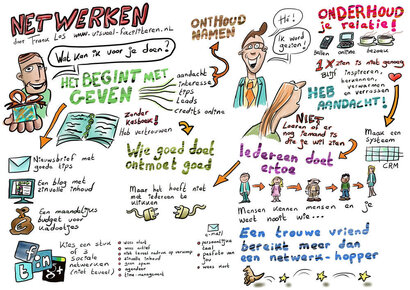 NETWERKEN
door Frank Los www.visual-facilitators.nl
Wat kan ik voor je doen?
HET BEGINT MET
GEVEN
aandacht
interesse
tips
leads
credits online
zonder
kasboek!
Heb vertrouwen
Wie goed doet
ontmoet goed
Nieuwsbrief met
goede tips
Een blog met
zinvolle inhoud
Een maandelijks
budget voor
kadootjes
Maar het hoeft niet
met iedereen te
klikken
f
t
in
g+
Kies een stuk
of 3
sociale
netwerken
(niet teveel)
geen spam
time-management
e-mail
persoonlijke
taal
wees kort
ONTHOUD
NAMEN
Hé!
Ik word
gezien!
ONDERHOUD
je relatie!
bellen
online
bezoek
1x zien is niet genoeg
Blijf
inspireren,
herkennen,
verwarmen
en verrassen
HEB
AANDACHT!
NIET
Loeren of er
nog iemand is
die je wil zien
Maak een
systeem
CRM
Iedereen doet
ertoe
Mensen kennen mensen en je
weet nooit wie...
Een trouwe vriend
bereikt meer dan
een netwerk-hopper